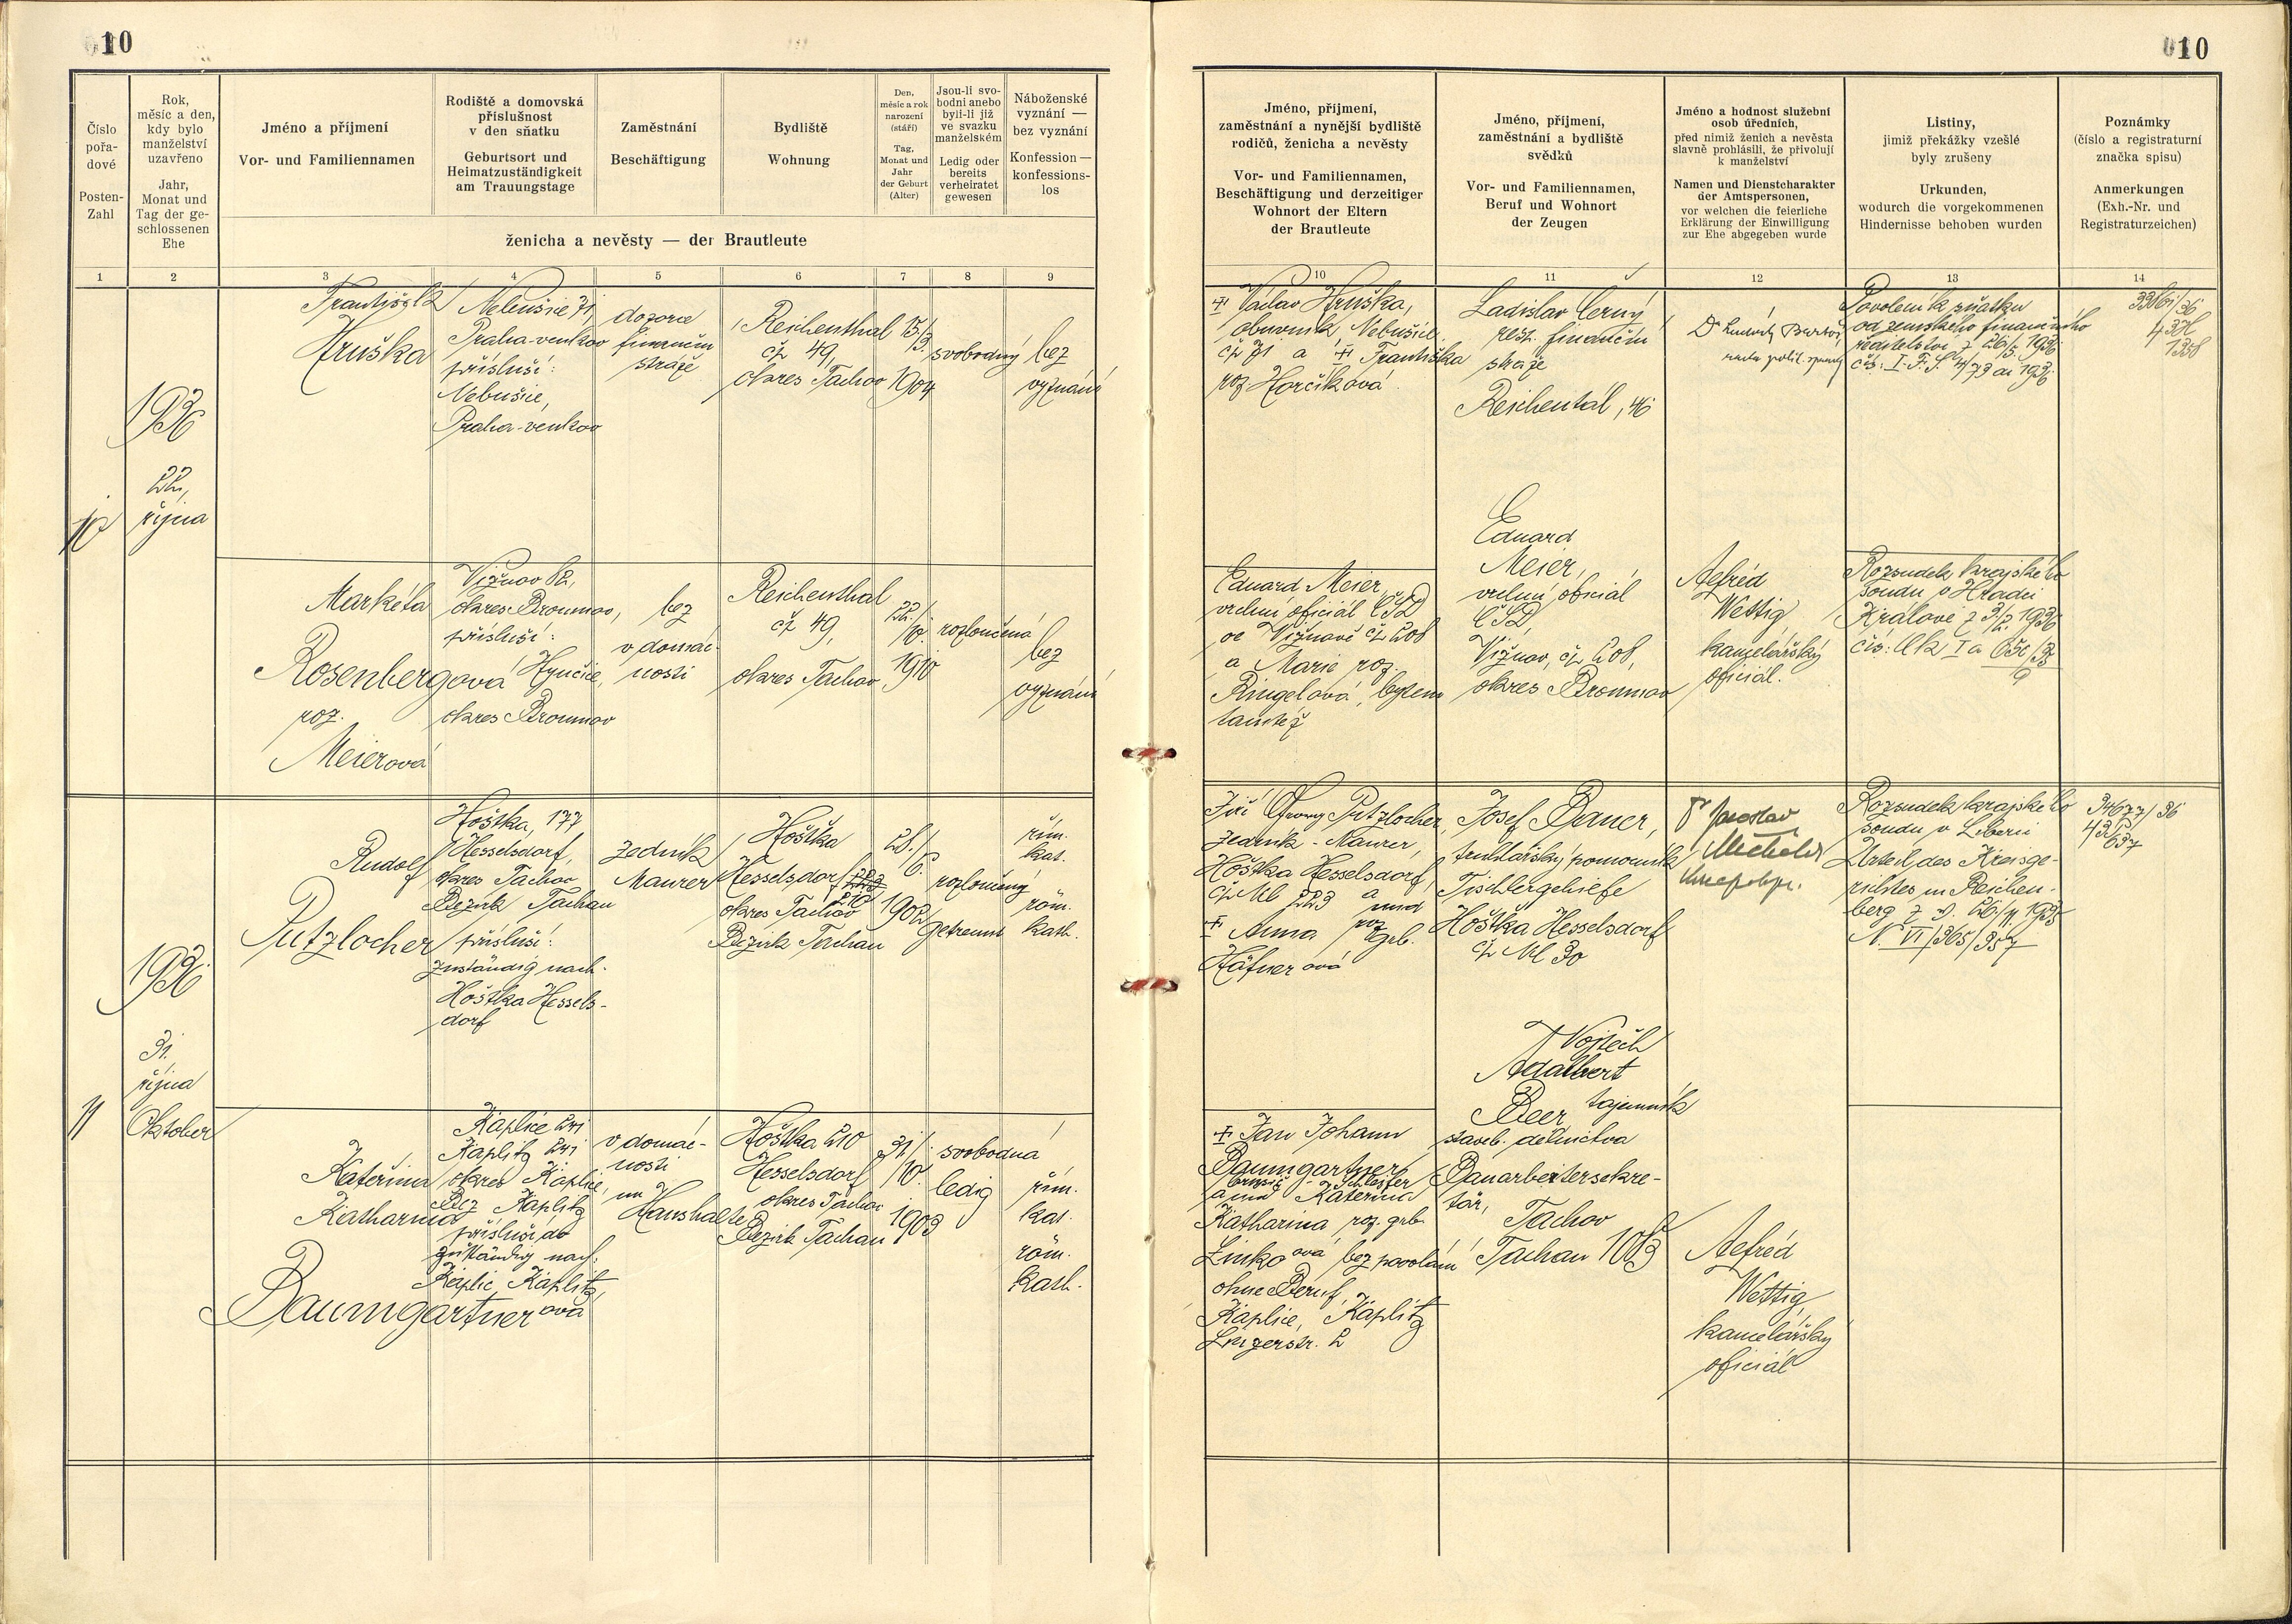 10
10
Číslo
pořa-
dové
Posten-
Zahl
Rok,
měsíc a den,
kdy bylo
manželství
uzavřeno
Jahr,
Monat und
Tag der ge-
schlossenen
Ehe
Jméno a příjmení
Vor- und Familiennamen
Rodiště a domovská
příslušnost
v den sňatku
Geburtsort und
Heimatzuständigkeit
am Trauungstage
Zaměstnání
Beschäftigung
Bydliště
Wohnung
Den,
měsíc a rok
narození
(stáří)
Tag,
Monat und
Jahr
der Geburt
(Alter)
Jsou-li svo-
bodni anebo
byli-li již
ve svazku
manželském
Ledig oder
bereits
verheiratet
gewesen
Náboženské
vyznání —
bez vyznání
Konfession —
konfessions-
los
ženicha a nevěsty — der Brautleute
Jméno, příjmení,
zaměstnání a nynější bydliště
rodičů, ženicha a nevěsty
Vor- und Familiennamen,
Beschäftigung und derzeitiger
Wohnort der Eltern
der Brautleute
Jméno, příjmení,
zaměstnání a bydliště
svědků
Vor- und Familiennamen,
Beruf und Wohnort
der Zeugen
Jméno a hodnost služební
osob úředních,
před nimiž ženich a nevěsta
slavně prohlásili, že přivolují
k manželství
Namen und Dienstcharakter
der Amtspersonen,
vor welchen die feierliche
Erklärung der Einwilligung
zur Ehe abgegeben wurde
Listiny,
jimiž překážky vzešlé
byly zrušeny
Urkunden,
wodurch die vorgekommenen
Hindernisse behoben wurden
Poznámky
(číslo a registraturní
značka spisu)
Anmerkungen
(Exh.-Nr. und
Registraturzeichen)
1 2 3 4 5 6 7 8 9 10 11 12 13 14
10
1936
22.
října
František
Hruška
Nebušice 71,
Praha-venkov
přísluší:
Nebušice,
Praha-venkov
dozorce
finanční
stráže
Reichenthal
čp 49,
okres Tachov
15/
3.
1904
svobodný
bez
vyznání
+ Václav Hruška,
obuvník, Nebušice
čp 71 a + Františka
roz Horčíková
Ladislav Černý
resp. finanční
stráže
Reichental, 46
Dr Ludvík Bartoš,
rada polit. správy
Povolení k sňatku
od zemského finančního
ředitelství z 26/5. 1936
Markéta
Rosenbergová
roz.
Meierová
Vižňov 82,
okres Broumov,
přísluší:
Hynčice,
okres Broumov
bez
v domác-
nosti
Reichenthal
čp 49,
okres Tachov
22./
10.
1910
rozloučená
bez
vyznání
Eduard Meier,
vrchní oficiál ČSD
ve Vižňově čp 208
a Marie roz.
Ringelová, bytem
tamtéž
Eduard
Meier,
vrchní oficiál
ČSD,
Vižňov, čp 208,
okres Broumov
Alfréd
Wettig
kancelářský
oficiál.
Rozsudek krajského
soudu v Hradci
Králové z 3/2. 1936
11
1936
31.
října
Oktober
Rudolf
Putzlocher
Hoštka, 177
Hesselsdorf,
okres Tachov
Bezirk Tachau
přísluší:
zuständig nach:
Hoštka Hessels-
dorf
zedník
Maurer
Hoštka
Hesselsdorf 223
210
okres Tachov
Bezirk Tachau
28./
6.
1902
rozloučený
getrennt
řím.
kat.
röm.
kath.
Jiří Georg Putzlocher,
zedník - Maurer,
Hoštka Hesselsdorf,
čp Nr 223 a und
+ Anna roz. geb.
Häfnerová
Josef Bauer,
truhlářský pomocník
Tischlergehilfe
Hoštka Hesselsdorf
čp Nr 30
Dr Jaroslav
Rozsudek krajského
soudu v Liberci
Urteil des Kreisge-
richtes in Reichen-
berg z v. 26./4. 1935
34677/36
Kateřina
Katharina
Baumgartnerová
Kaplice 241
Kaplitz 241
okres Kaplice,
Bez Kaplitz
přísluší do
zuständig nach:
Kaplic Kaplitz,
v domác-
nosti
im
Haushalte
Hoštka 210
Hesselsdorf
okres Tachov
Bezirk Tachau
31/
10.
1903
svobodná
ledig
řím.
kat.
röm.
kath.
+ Jan Johann
Baumgartner,
brusič - Schleifer
a und Kateřina
Katharina roz. geb.
Linkoová bez povolání
ohne Beruf,
Kaplice, Kaplitz
Linzerstr. 2
Vojtěch
Adalbert
Beer tajemník
staveb. dělnictva
Bauarbeitersekre-
tär,
Tachov
Tachau 1013
Alfréd
Wettig,
kancelářský
oficiál